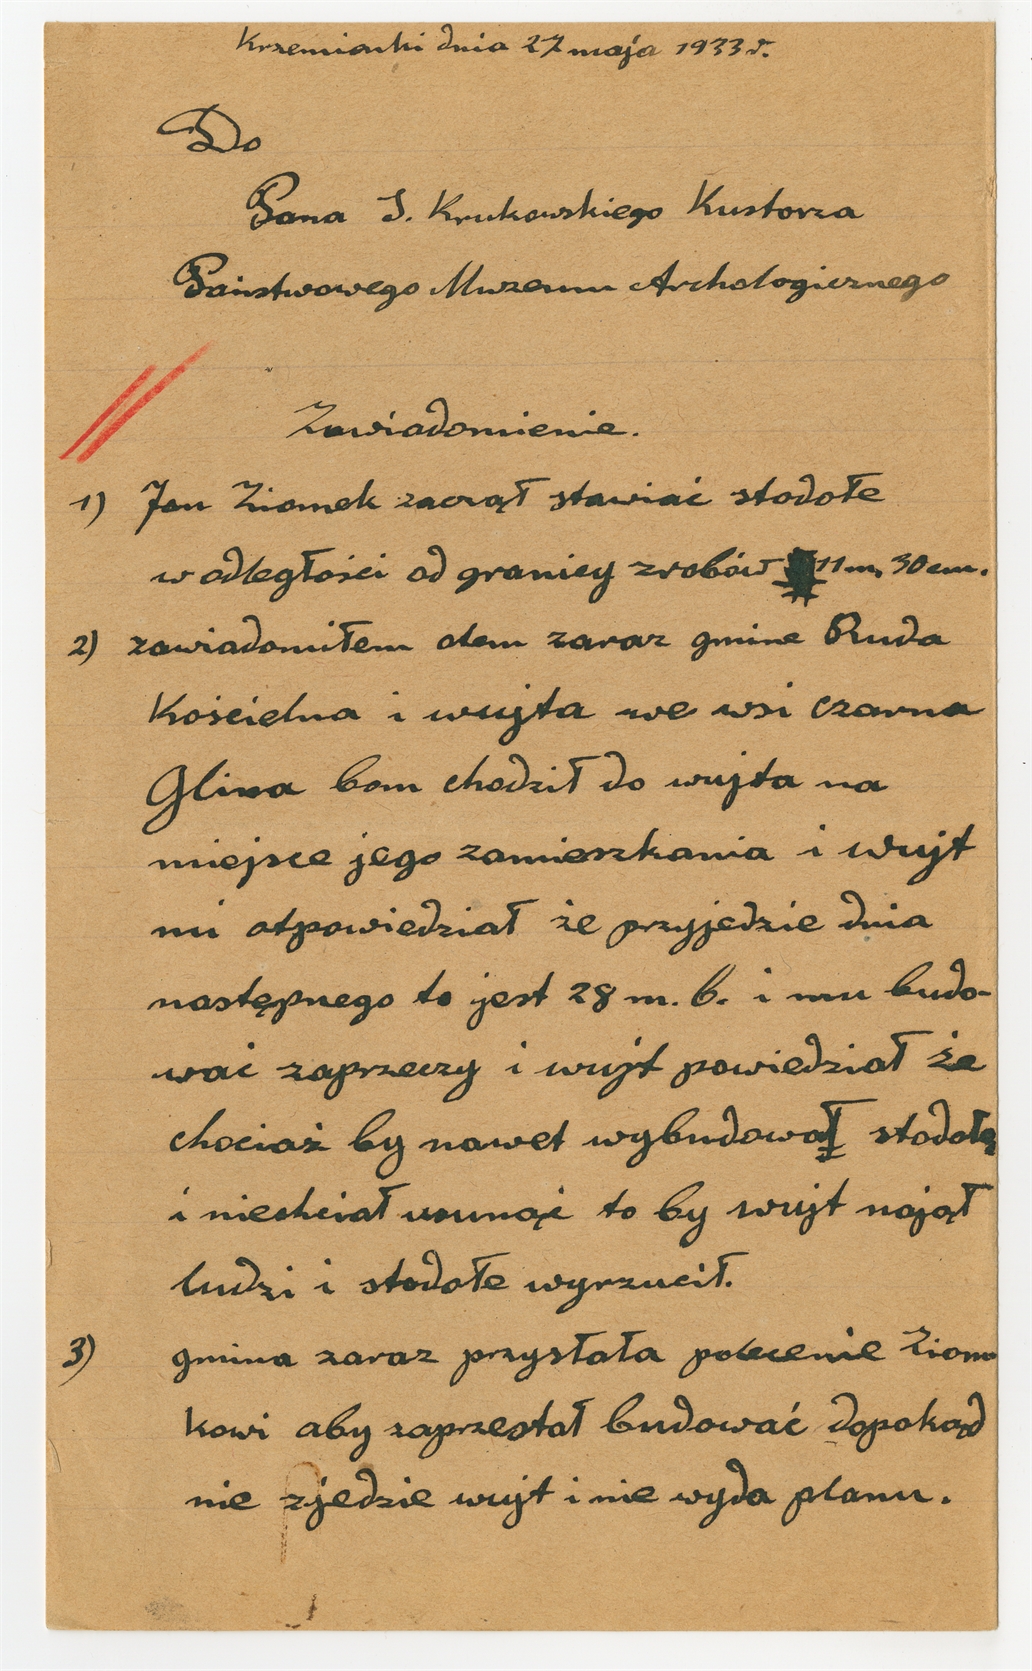 Krzemionki dnia 27 maja 1933 r.
Do
Pana S. Krukowskiego Kustorza
Państwowego Muzeum Archologicznego
Zawiadomienie.
1) Jan Ziomek zaczął stawiać stodołe
w odległości od granicy zrobów 11 m, 30 cm.
2) zawiadomiłem otem zaraz gmine Ruda
Kościelna i wujta we wsi czarna
Glina bom chodził do wujta na
miejsce jego zamieszkania i wujt
mi otpowiedział że przyjedzie dnia
następnego to jest 28 m. b. i mu budo-
wać zaprzeczy i wujt powiedział że
chociaż by nawet wybudował stodołę
i niechciał usunąć to by wujt najął
ludzi i stodołe wyrzucił.
3) gmina zaraz przysłała polecenie Ziom
kowi aby zaprzestał budować dopokąd
nie zjedzie wujt i nie wyda planu.